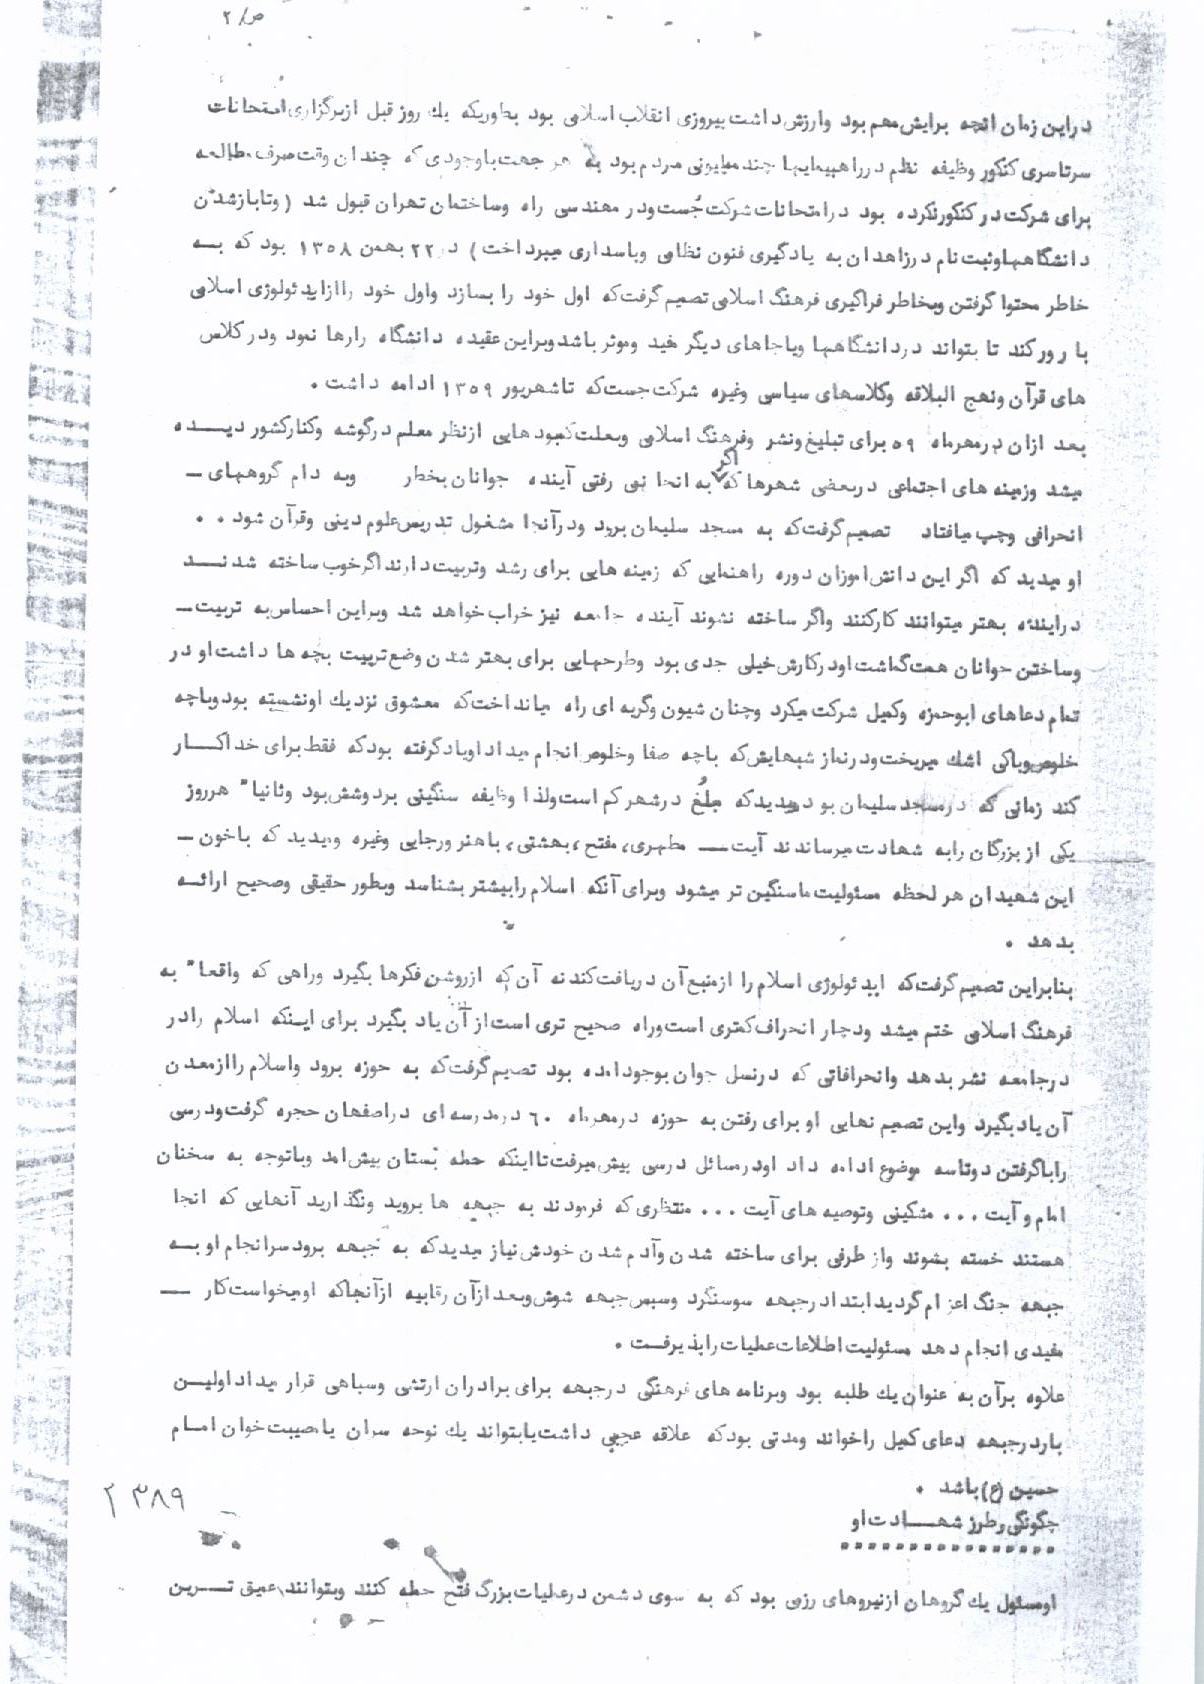 ص/ ۲
دراین زمان انچه برایش مهم بود وارزش داشت پیروزی انقلاب اسلامی بود بطوریکه یك روز قبل ازبرگزاری امتحانات
سرتاسری کنکور وظیفه نظم درراهپیمایها چند میلیونی مردم بود به هر جهت باوجودی که چندان وقت صرف مطالعه
برای شرکت در کنکور نکرده بود درامتحانات شرکت جُست ودر مهندسی راه وساختمان تهران قبول شد (وتابازشدن
دانشگاهها وثبت نام درزاهدان به یادگیری فنون نظامی وپاسداری میپرداخت) در ۲۲ بهمن ۱۳۵۸ بود که به
خاطر محتوا گرفتن وبخاطر فراگیری فرهنگ اسلامی تصمیم گرفت که اول خود را بسازد واول خود راازاید ئولوژی اسلامی
بارور کند تا بتواند دردانشگاهها ویاجاهای دیگر مفید وموثر باشد وبراین عقیده دانشگاه رارها نمود ودر کلاس
های قرآن ونهج البلاقه وکلاسهای سیاسی وغیره شرکت جست که تاشهریور ۱۳۵۹ ادامه داشت .
بعد ازان درمهرماه ۵۹ برای تبلیغ ونشر وفرهنگ اسلامی وبعلت کمبودهایی ازنظر معلم درگوشه وکنارکشور دیده
میشد وزمینه های اجتماعی دربعضی شهرها که اگر به انجا نمی رفتی آینده جوانان بخطر وبه دام گروههای ـ
انحرافی وچپ میافتاد تصمیم گرفت که به مسجد سلیمان برود ودرآنجا مشغول تدریس علوم دینی وقرآن شود . .
او میدید که اگر این دانش اموزان دوره راهنمایی که زمینه هایی برای رشد وتربیت دارند اگرخوب ساخته شدند
دراینده بهتر میتوانند کارکنند واگر ساخته نشوند آینده جامعه نیز خراب خواهد شد وبراین احساس به تربیت ـ
وساختن جوانان همت گماشت اودر کارش خیلی جدی بود وطرحهایی برای بهتر شدن وضع تربیت بچه ها داشت او در
تمام دعاهای ابوحمزه وکمیل شرکت میکرد وچنان شیون وگریه ای راه میانداخت که معشوق نزدیك اونشسته بود وباچه
خلوص وپاکی اشك میریخت ودر نماز شبهایش که باچه صفا وخلوص انجام میداد اویادگرفته بود که فقط برای خدا کار
کند زمانی که درمسجد سلیمان بود میدید که مبلُغ درشهر کم است ولذا وظیفه سنگینی بردوشش بود وثانیا" هرروز
یکی از بزرگان رابه شهادت میرساندند آیت ـ مطهری، مفتح، بهشتی، باهنر ورجایی وغیره ومیدید که باخون ـ
این شهیدان هر لحظه مسئولیت ماسنگین تر میشود وبرای آنکه اسلام رابیشتر بشناسد وبطور حقیقی وصحیح ارائه
بدهد .
بنابراین تصمیم گرفت که اید ئولوژی اسلام را ازمنبع آن دریافت کند نه آن که ازروشن فکرها بگیرد وراهی که واقعا" به
فرهنگ اسلامی ختم میشد ودچار انحراف کمتری است وراه صحیح تری است از آن یاد بگیرد برای اینکه اسلام رادر
درجامعه نشر بدهد وانحرافاتی که درنسل جوان بوجود امده بود تصمیم گرفت که به حوزه برود واسلام راازمعدن
آن یاد بگیرد واین تصمیم نهایی او برای رفتن به حوزه درمهرماه ۶۰ درمدرسه ای دراصفهان حجره گرفت ودرسی
راباگرفتن دوتاسه موضوع ادامه داد اودر مسائل درسی پیش میرفت تااینکه حمله بُستان پیش امد وباتوجه به سخنان
امام و آیت ... مشکینی وتوصیه های آیت ... منتظری که فرمودند به جبهه ها بروید ونگذارید آنهایی که انجا
هستند خسته بشوند واز طرفی برای ساخته شدن وآدم شدن خودش نیاز میدید که به جبهه برود سرانجام او به
جبهه جنگ اعزام گردید ابتدا درجبهه سوسنگرد وسپس جبهه شوش وبعد ازآن رقابیه ازآنجا که او میخواست کار ـ
مفیدی انجام دهد مسئولیت اطلاعات عملیات راپذیرفت .
علاوه برآن به عنوان یك طلبه بود وبرنامه های فرهنگی درجبهه برای برادران ارتشی وسپاهی قرار میداد اولین
بار درجبهه دعای کمیل راخواند ومدتی بود که علاقه عجیبی داشت یابتواند یك نوحه سران یا مصیبت خوان امام
حسین (ع) باشد .
۲۳۸۹
چگونگی وطرز شهادت او
اومسئول یك گروهان ازنیروهای رزمی بود که به سوی دشمن درعملیات بزرگ فتح حمله کنند وبتوانند عمیق ترین